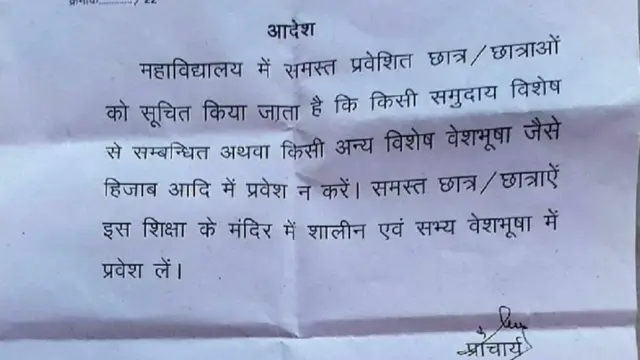 / 22
आदेश
महाविद्यालय में समस्त प्रवेशित छात्र/छात्राओं
को सूचित किया जाता है कि किसी समुदाय विशेष
से सम्बन्धित अथवा किसी अन्य विशेष वेशभूषा जैसे
हिजाब आदि में प्रवेश न करें। समस्त छात्र/छात्राऐं
इस शिक्षा के मंदिर में शालीन एवं सभ्य वेशभूषा में
प्रवेश लें।
प्राचार्य